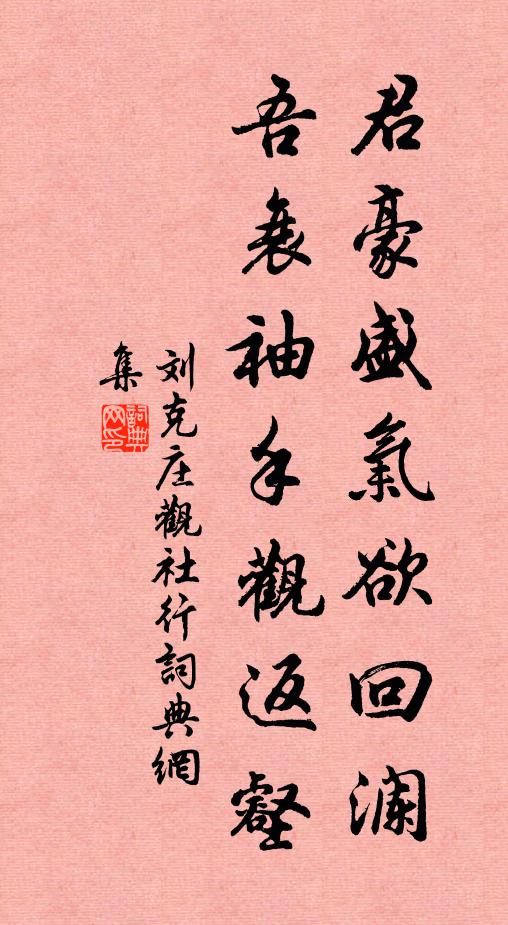 君豪盛氣欲回瀾
吾衰袖手觀返壑
刘克庄觀社行詞典網
集
詞典网印